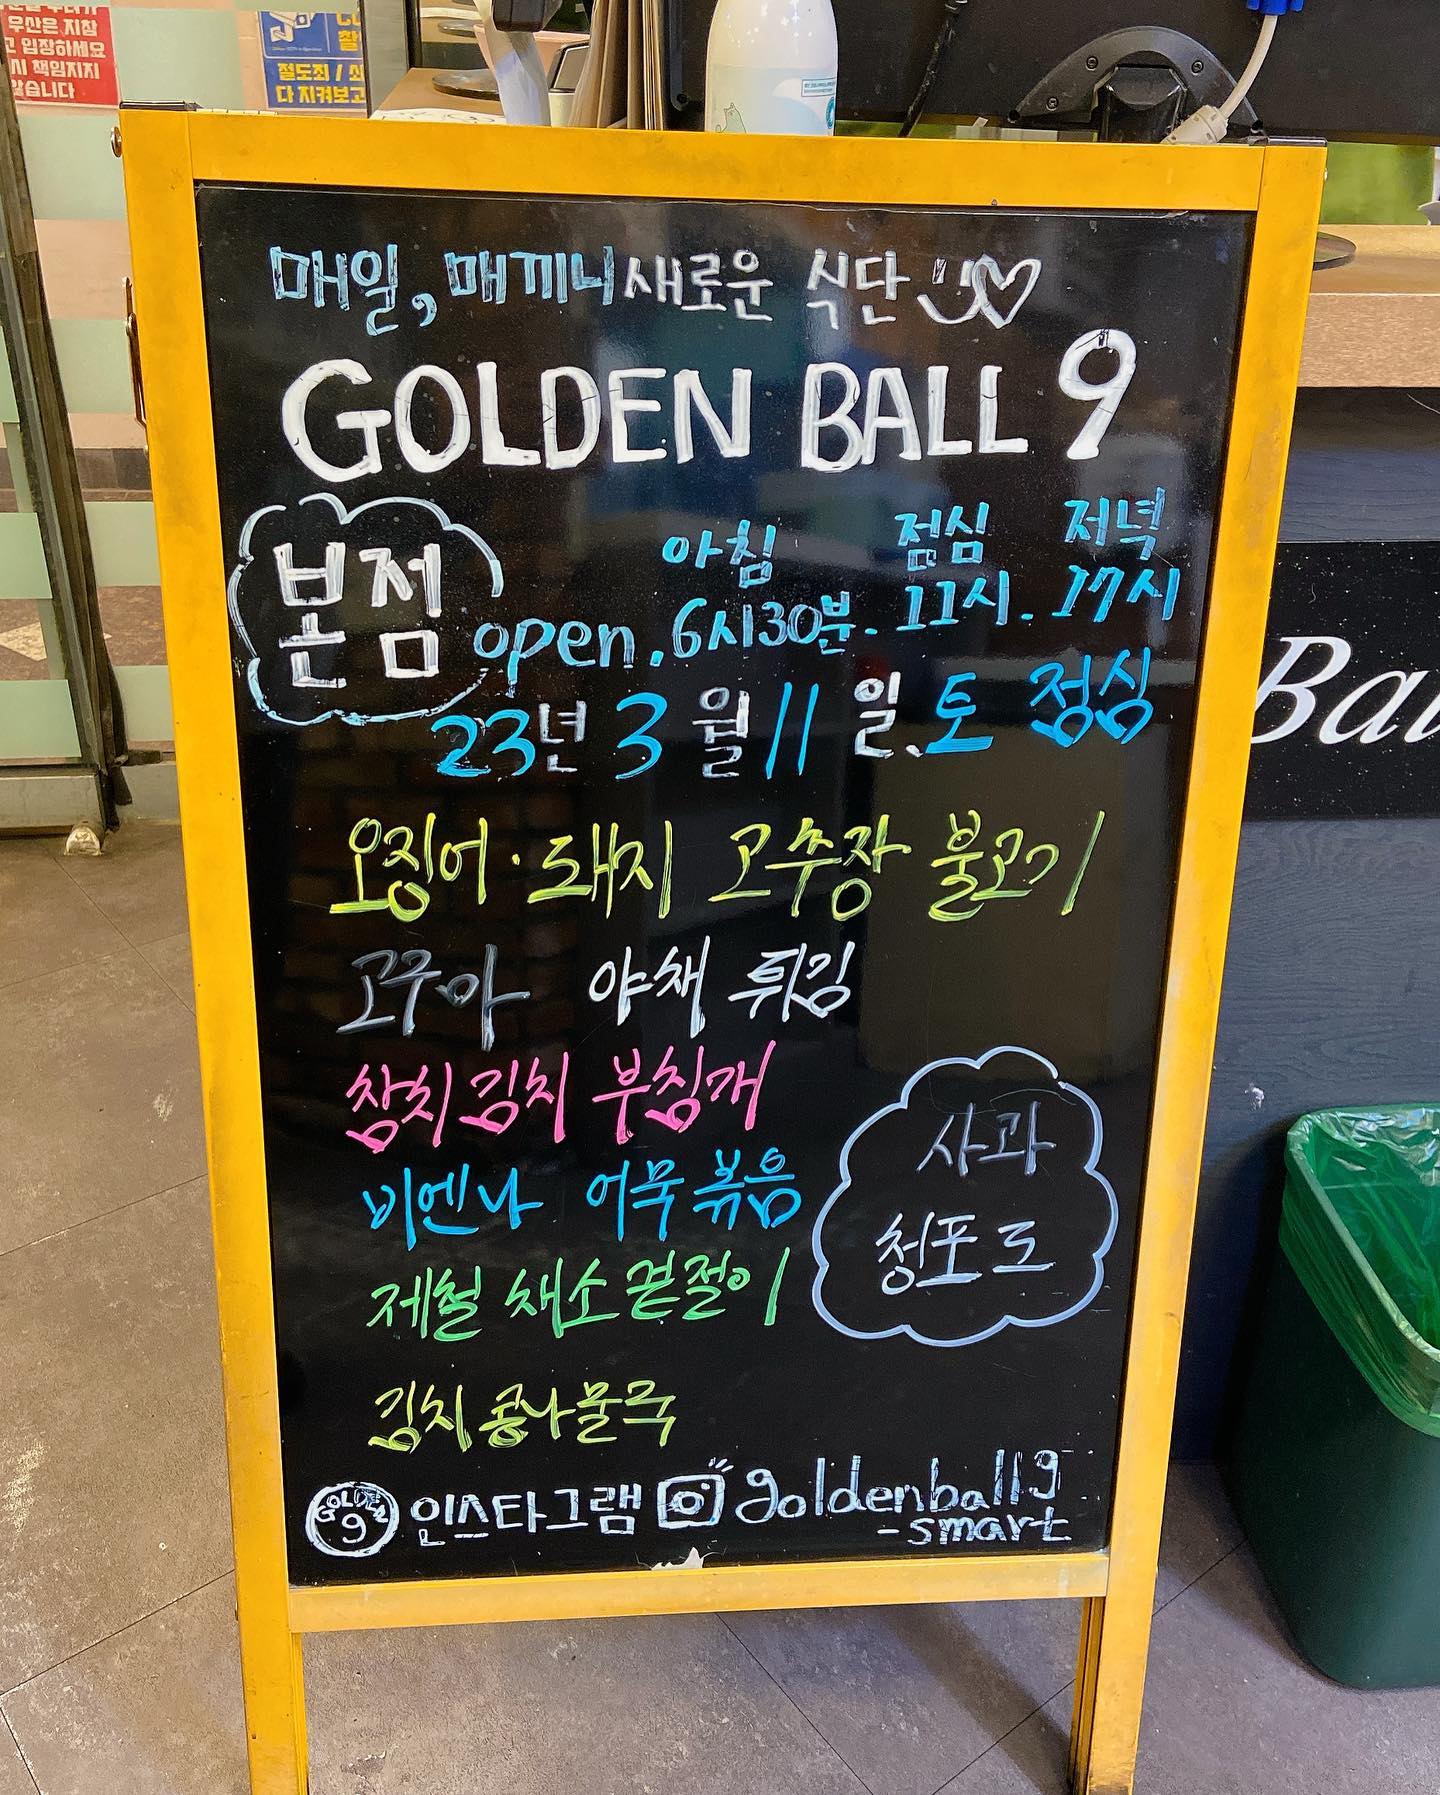 우산은 지참
고 입장하세요
시 책임지지
않습니다
절도죄 /
다 지켜보고
매일, 매끼니 새로운 식단
GOLDEN BALL 9
본점
아침 점심 저녁
open. 6시30분. 11시. 17시
23년 3월 11일. 토 점심
오징어·돼지 고추장 불고기
고구마 야채 튀김
참치김치 부침개
비엔나 어묵볶음
제철 채소 겉절이
사과
청포도
김치콩나물국
GOLDEN
9
인스타그램 goldenball9
-smart